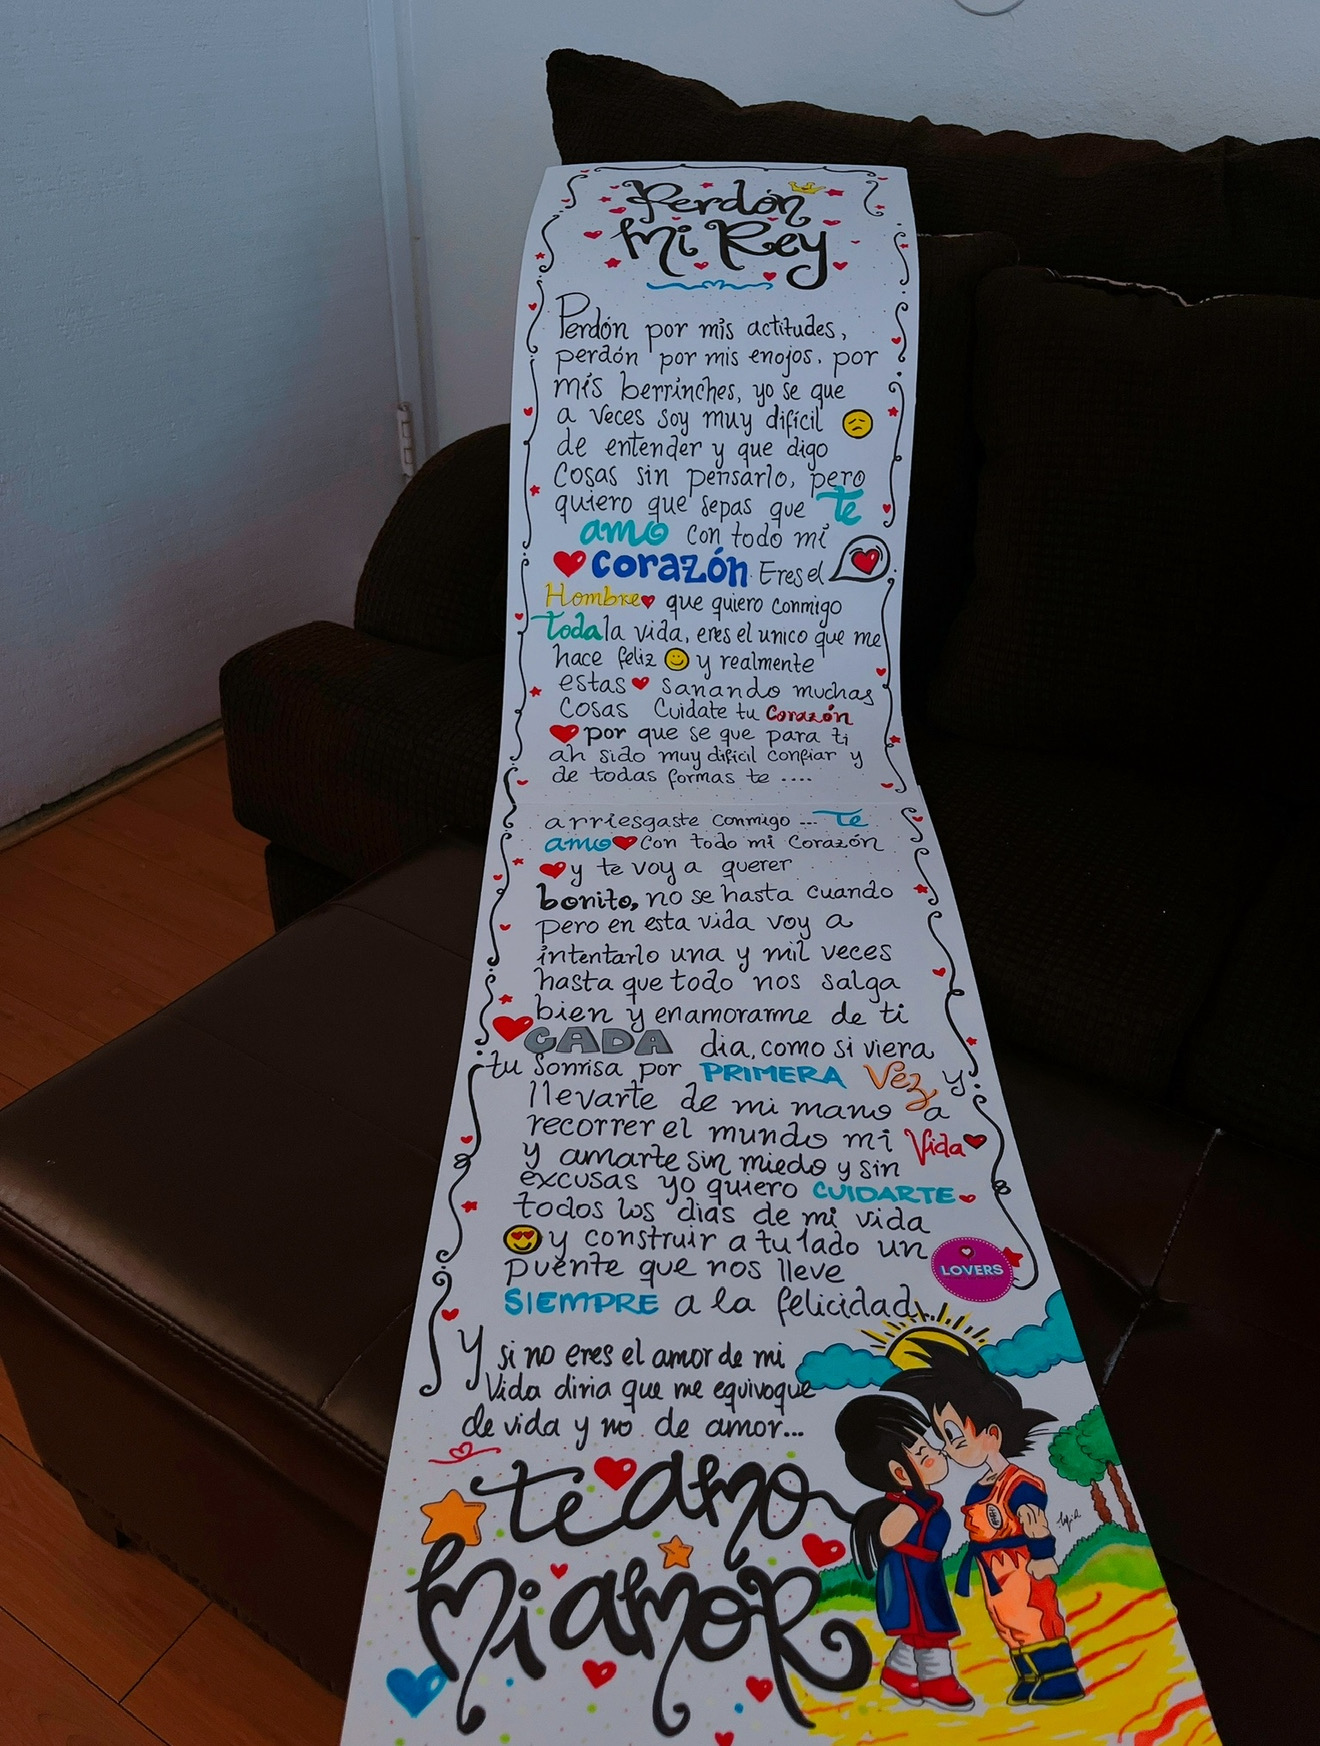 Perdón
Mi Rey
Perdón por mis actitudes,
perdón por mis enojos. por
mis berrinches, yo se que
a veces soy muy dificil
de entender y que digo
Cosas sin pensarlo, pero
quiero que sepas que te
amo con todo mi
corazón. Eres el
Hombre que quiero conmigo
Toda la vida, eres el unico que me
hace feliz y realmente
estas sanando muchas
cosas Cuidate tu Corazón
por que se que para ti
ah sido muy dificil confiar y
de todas formas te ....
arriesgaste conmigo --- Te
amo con todo mi Corazón
y te voy a querer
bonito, no se hasta cuando
pero en esta vida voy a
intentarlo una y mil veces
hasta que todo nos salga
bien y enamorarme de ti
CADA dia, como si viera
tu sonrisa por PRIMERA Vez y
llevarte de mi mano a
recorrer el mundo mi Vida
y amarte sin miedo y sin
excusas yo quiero CUIDARTE
todos los dias de mi vida
y construir a tu lado un
puente que nos lleve
LOVERS
SIEMPRE a la felicidad.
Y si no eres el amor de mi
Vida diria que me equivoque
de vida y no de amor...
te amo
Mi amoR